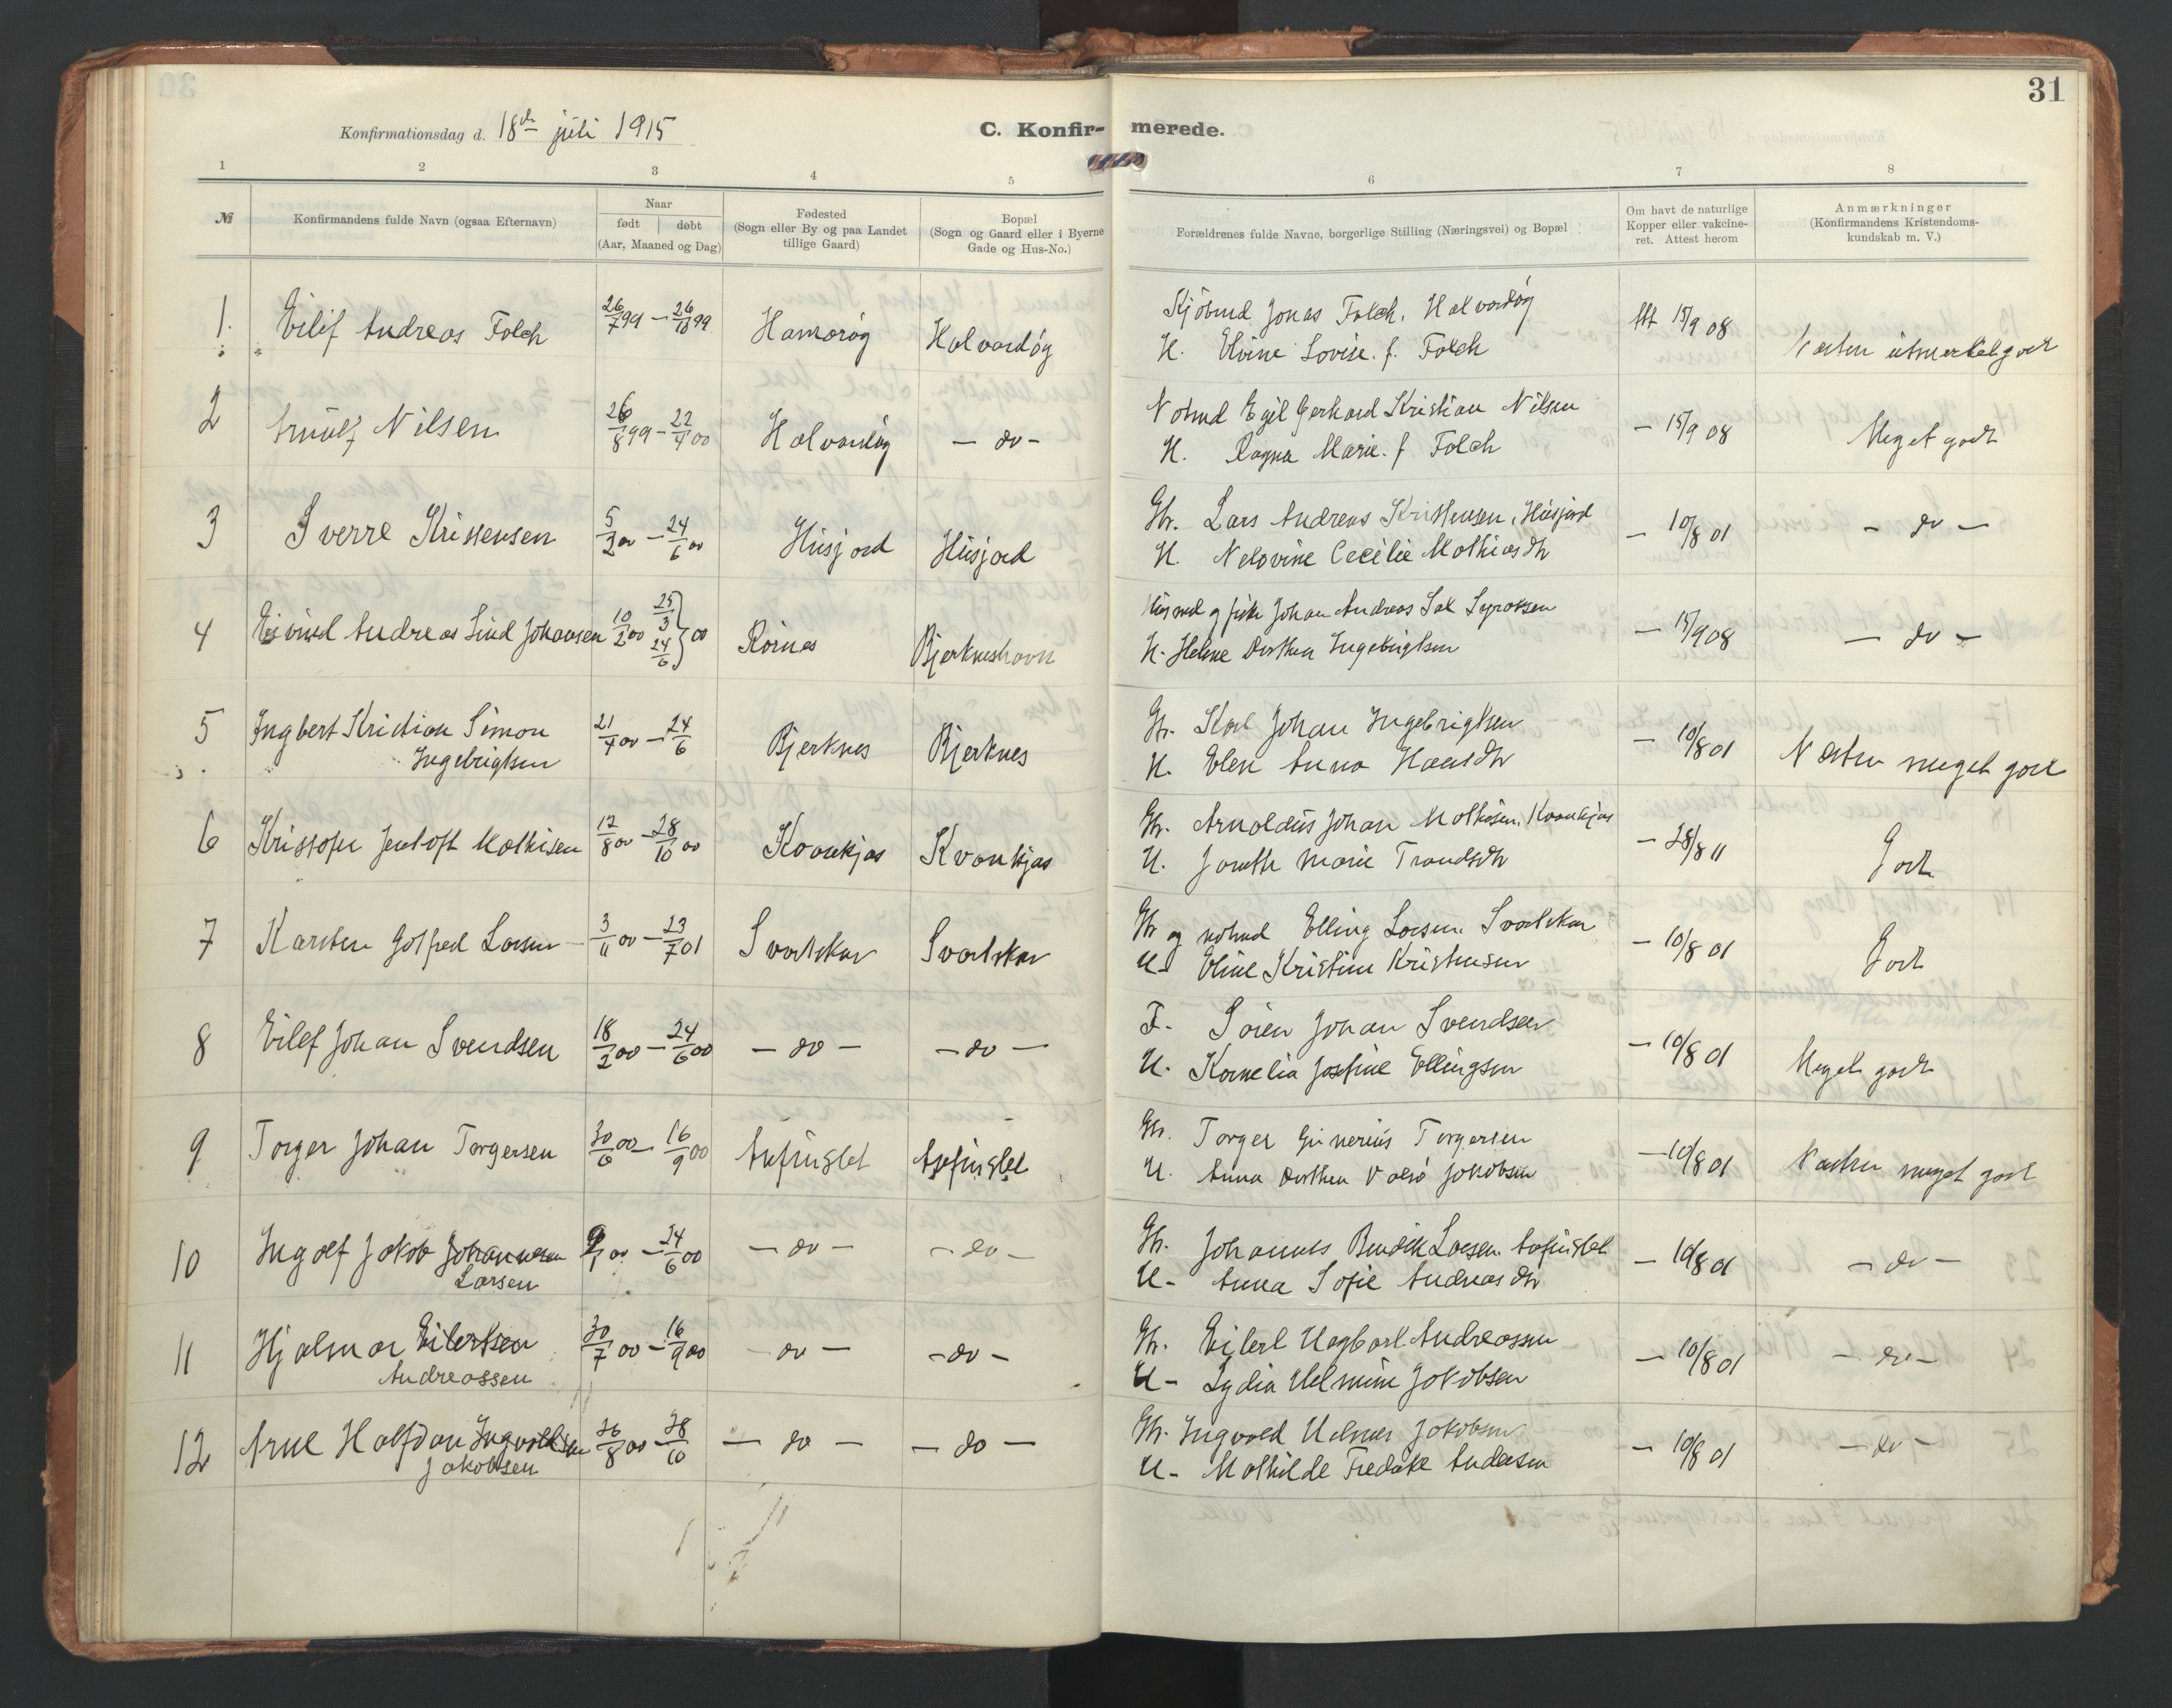 31
Konfirmationsdag d. 18de juli 1915
C. Konfirmerede.
1 2 3 4 5 6 7 8
№
Konfirmandens fulde Navn (ogsaa Efternavn)
Naar
født | døbt
(Aar, Maaned og Dag)
Fødested
(Sogn eller By og paa Landet
tillige Gaard)
Bopæl
(Sogn og Gaard eller i Byerne
Gade og Hus-No.)
Forældrenes fulde Navne, borgerlige Stilling (Næringsvei) og Bopæl
Om havt de naturlige
Kopper eller vakcine-
ret. Attest herom
Anmærkninger
(Konfirmandens Kristendoms-
kundskab m. V.)
1. Eilif Andreas Falch 26/7 99 — 26/ 99 Hamarøy Halvardøy
Kjøbmd Jonas Falch, Halvardøy
H. Elvine Lovise f. Falch
Att 15/9 08 Næsten utmerket godt
2 Arnulf Nilsen 26/8 99 — 22/4 00 Halvardøy — do —
Notmd Egil Gerhard Kristian Nilsen
H. Ragna Marie f Falch
— 15/9 08 Meget godt
3 Sverre Kristensen 5/2 00 — 24/6 00 Husjord Husjord
Gbr. Lars Andreas Kristensen, Husjord
H. Nelovine Cecilie Mathiasdtr
— 10/8 01 — do —
4 Eivind Andreas Lind Johansen 10/2 00 25/3 24/6 } 00 Rørnes Bjerkneshavn
Husmd og fisk Johan Andreas Sal
H. Helene Dorthea Ingebrigtsen
— 15/9 08 — do —
5 Ingbert Kristian Simon
Ingebrigtsen
21/4 00 — 24/6 Bjerknes Bjerknes
Gbr. Karl Johan Ingebrigtsen
H. Elen Anna Hansdtr
— 10/8 01 Næsten meget godt
6 Kristofer Jentoft Mathisen 12/8 00 — 28/10 00 Kvankjos Kvankjos
Gbr. Arnoldus Johan Mathisen, Kvankjos
H. Jonette Marie Trondsdtr
— 28/8 11 Godt
7 Karsten Gotfred Larsen — 3/11 00 — 23/7 01 Svartskar Svartskar
Gbr og notmd Elling Larsen Svartskar
H — Eline Kristine Kristensen
— 10/8 01 Godt
8 Eilef Johan Svendsen 18/2 00 — 24/6 00 — do — — do —
F. Sören Johan Svendsen
H. Kornelia Josefine Ellingsen
— 10/8 01 Meget godt
9 Torger Johan Torgersen 30/6 00 — 16/9 00 Aafinslet Aafinslet
Gbr. Torger Gunerius Torgersen
H. Anna Dorthea Valsø Jakobsen
— 10/8 01 Næsten meget godt
10 Ingolf Jakob Johannesen
Larsen
9/1 00 — 24/6 00 — do — — do —
Gbr. Johannes Bendik Larsen Aafinslet
H — Anna Sofie Andreasdtr
— 10/8 01 — do —
11 Hjalmar Eilertsen
Andreassen
30/7 00 — 16/9 00 — do — — do —
Gbr. Eilert Hagbart Andreassen
H — Lydia Helmine Jakobsen
— 10/8 01 — do —
12 Arne Halfdan Ingvaldsen
Jakobsen
26/8 00 — 28/10 — do — — do —
Gbr. Ingvald Helmer Jakobsen
H — Mathilde Fredrikke Andersen
— 10/8 01 — do —